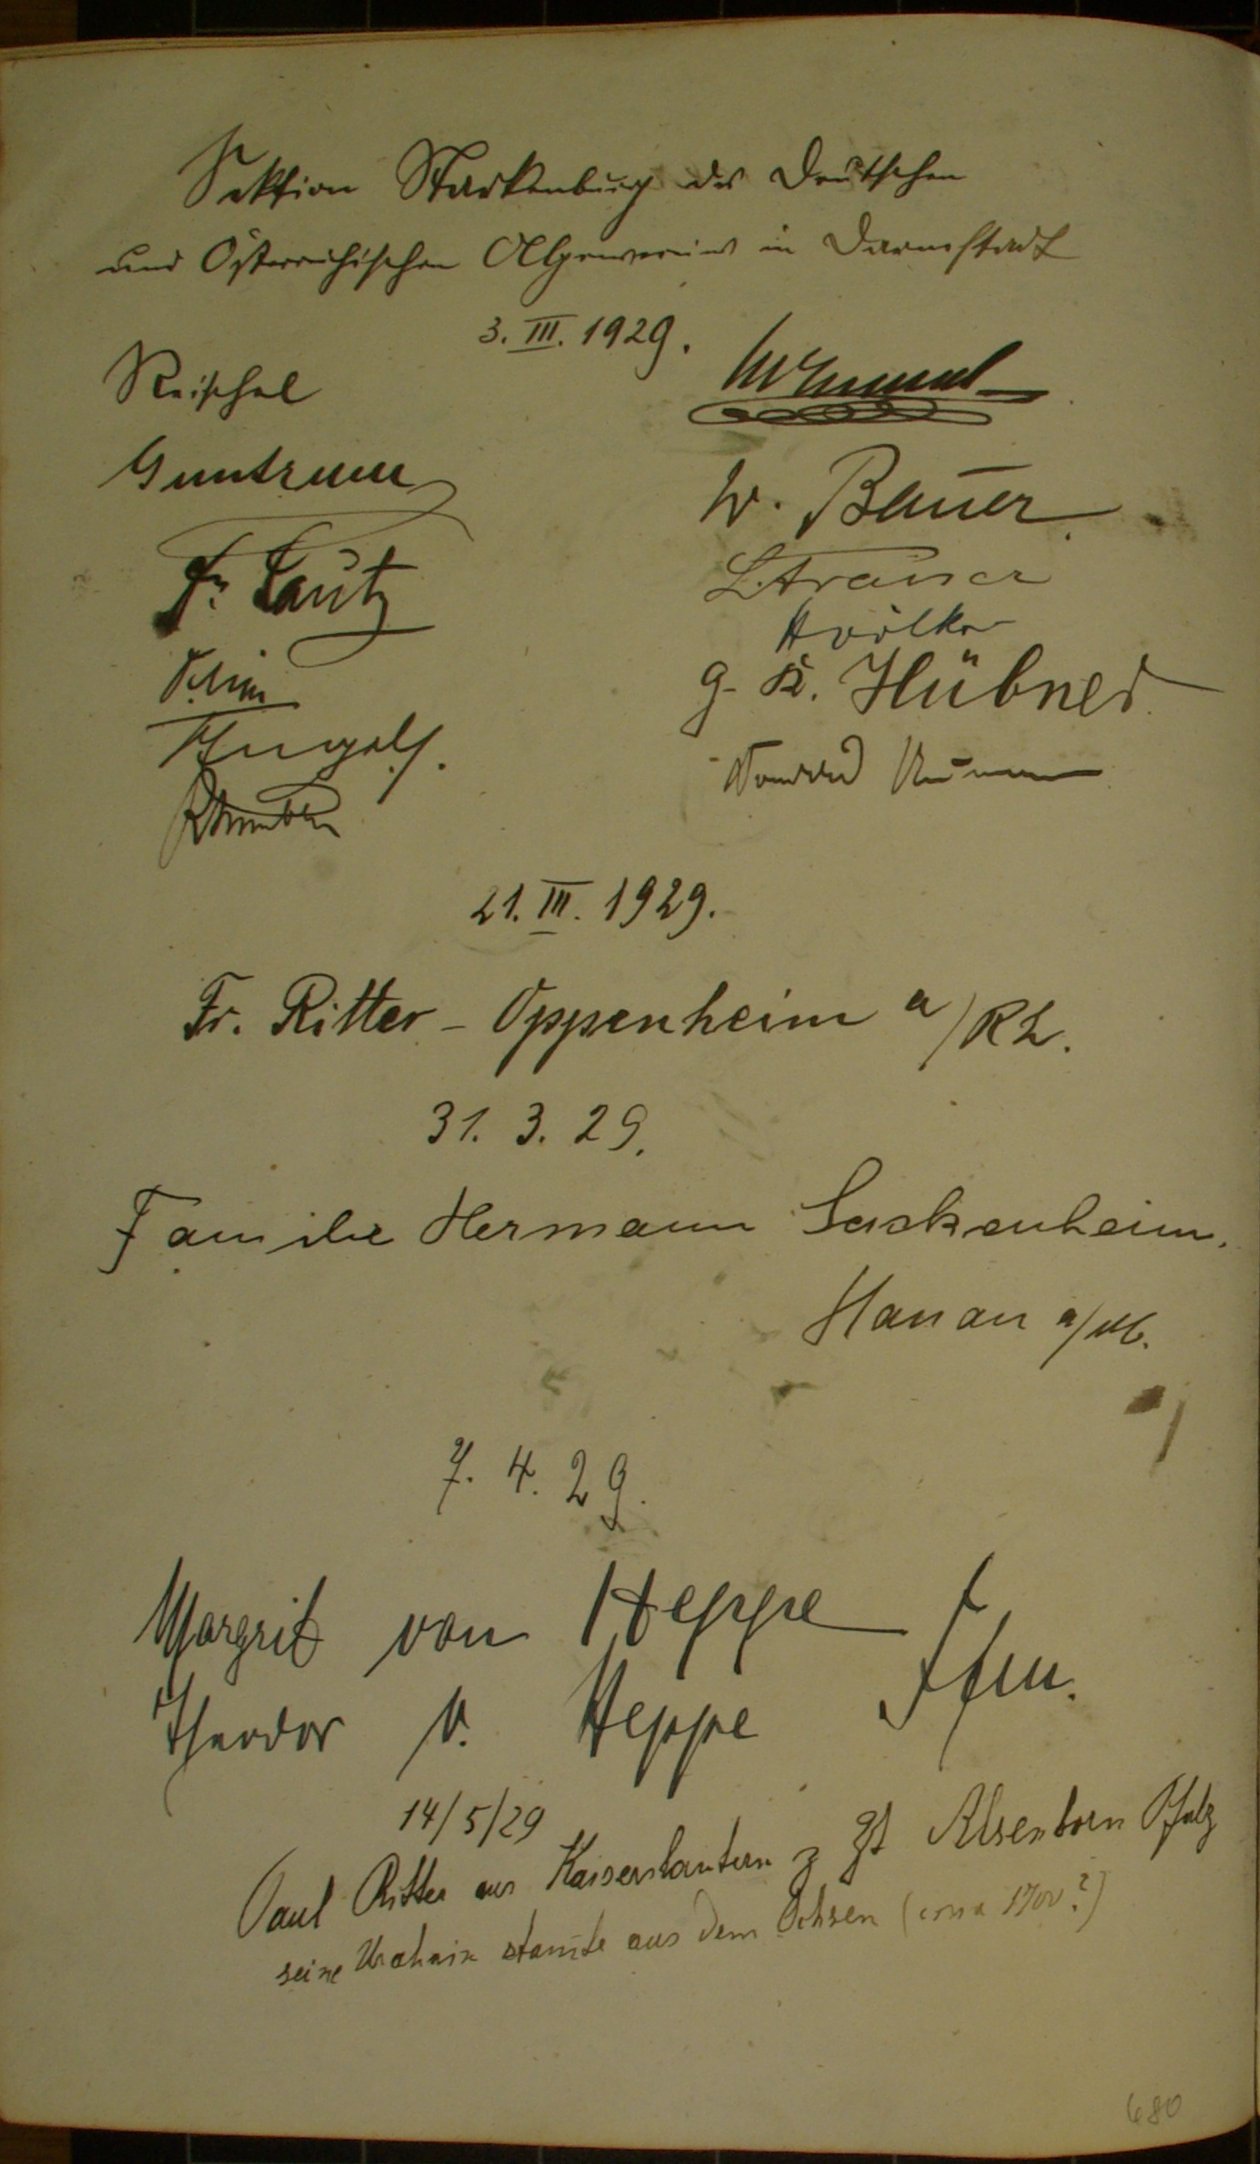 Sektion Starkenburg des Deutschen
und Österreichischen Alpenvereins in Darmstadt
3. III. 1929.
Reischel
Guntrum
W. Bauer
Fr. Lautz
L. Strauser
Hvölker
G. K. Hübner
Engels.
21. III. 1929.
Fr. Ritter - Oppenheim a/Rh.
31. 3. 29.
Familie Hermann Sackenheim.
Hanau a/M.
7. 4. 29.
Margrit von Heppe
Theodor v. Heppe Ffm.
14/5/29
Paul Ritter aus Kaiserslautern z Zt Alsenborn Pfalz
seine Urahnin stamte aus dem Ochsen (circa 1700?)
680